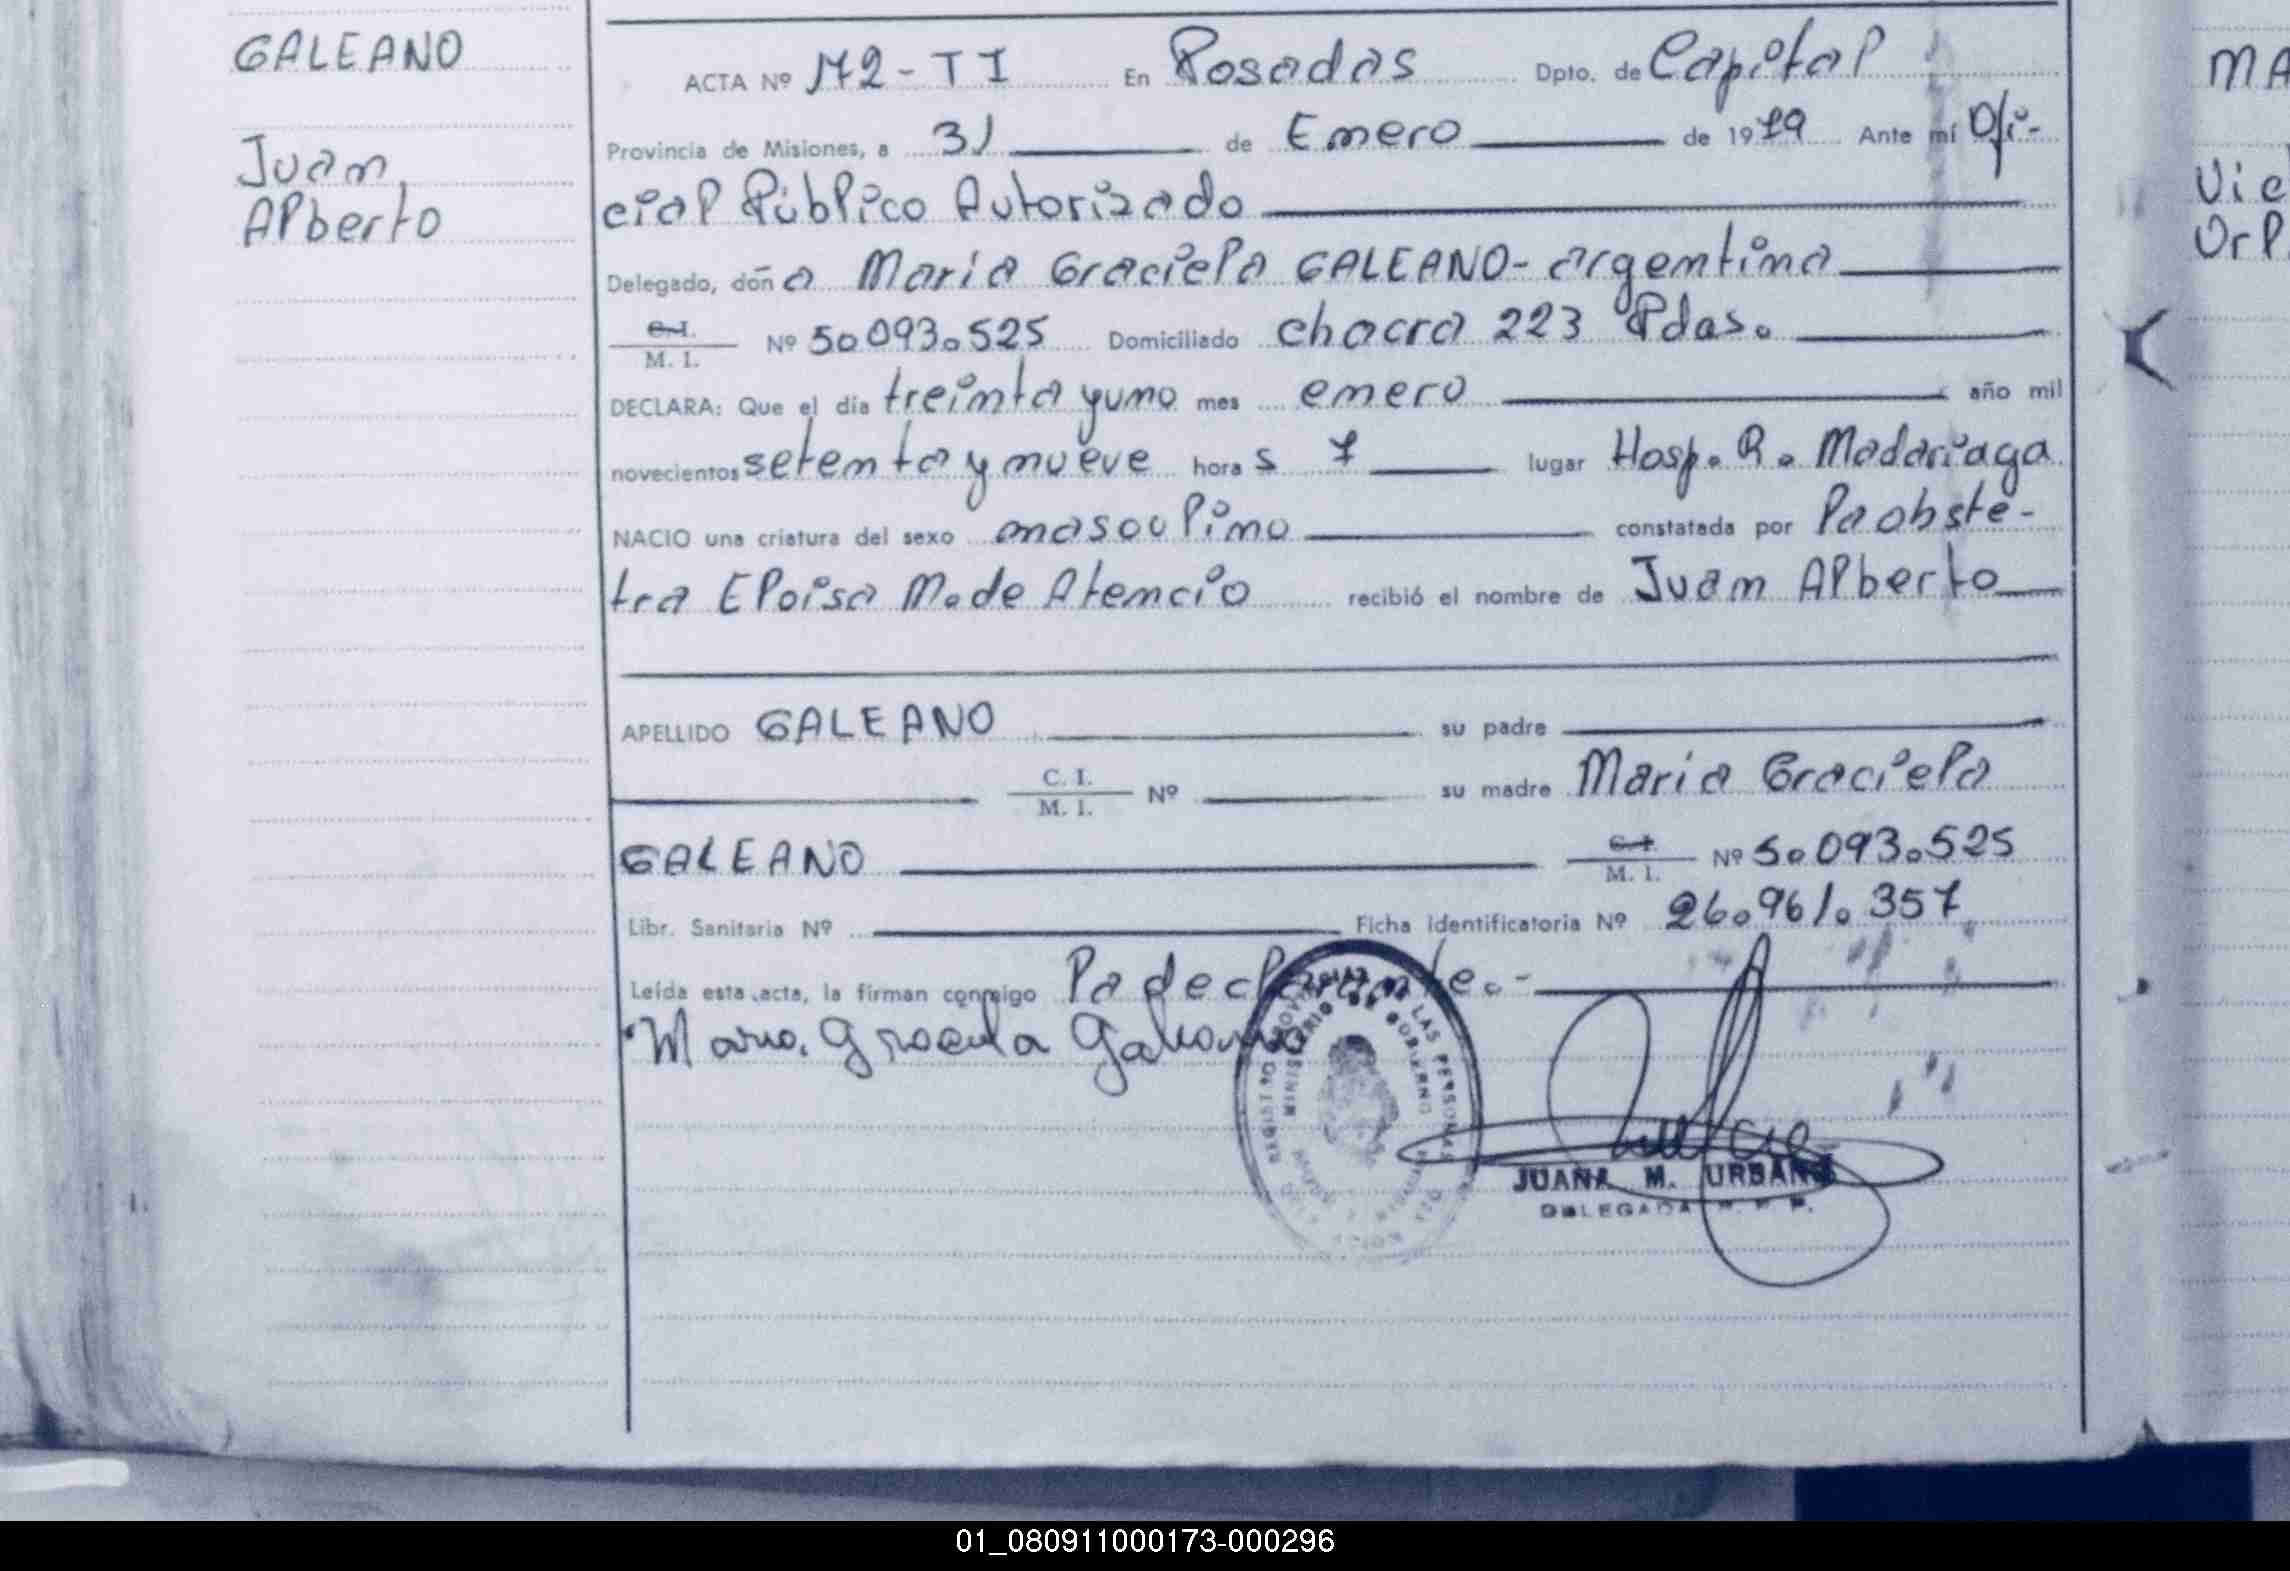 GALEANO
Juan
Alberto
ACTA Nº 172-TI En Posadas Dpto. de Capital
Provincia de Misiones, a 31 de Enero de 1979 Ante mí Ofi-
cial Público Autorizado
Delegado, doña Maria Graciela GALEANO- argentina
C.I. M. I. Nº 5.093.525 Domiciliado chacra 223 Pdas.
DECLARA: Que el día treinta y uno mes enero año mil
novecientos setenta y nueve horas 7 lugar Hosp. R. Madariaga
NACIO una criatura del sexo masculino constatada por la obste-
tra Eloisa M. de Atencio recibió el nombre de Juan Alberto
APELLIDO GALEANO su padre
C. I. M. I. Nº su madre Maria Graciela
GALEANO C.I. M. I. Nº 5.093.525
Libr. Sanitaria Nº Ficha identificatoria Nº 26.961.357
Leída esta acta, la firman conmigo la declarante.-
Maria Graciela Galeano
REGISTRO PROVINCIAL DE LAS PERSONAS
MINISTERIO DE GOBIERNO
JUANA M. URBAN
DELEGADA R. P. P.
MA
Vic
Orl
01_080911000173-000296